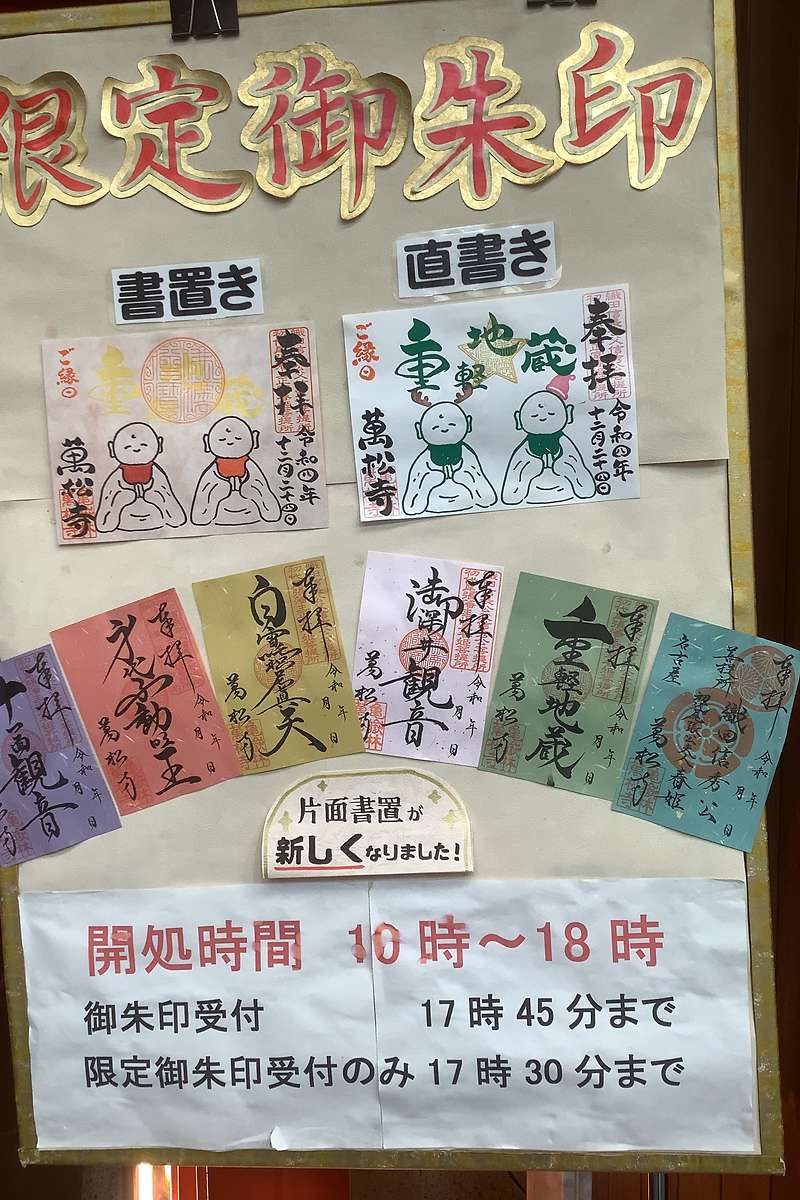 限定御朱印
書置き
直書き
奉拝
令和四年
十二月二十四日
重
蔵
ご縁日
萬松寺
奉拝
令和四年
十二月二十四日
重軽地蔵
ご縁日
萬松寺
奉拝
令和 年 月 日
十一面観音
奉拝
令和 年 月 日
萬松寺
奉拝
令和 年 月 日
萬松寺
奉拝
令和 年 月 日
御深井観音
萬松寺
奉拝
令和 年 月 日
重軽地蔵
萬松寺
奉拝
令和 年 月 日
織田信秀公
春姫
名古屋
萬松寺
片面書置が
新しくなりました!
開処時間 10時～18時
御朱印受付 17時45分まで
限定御朱印受付のみ17時30分まで